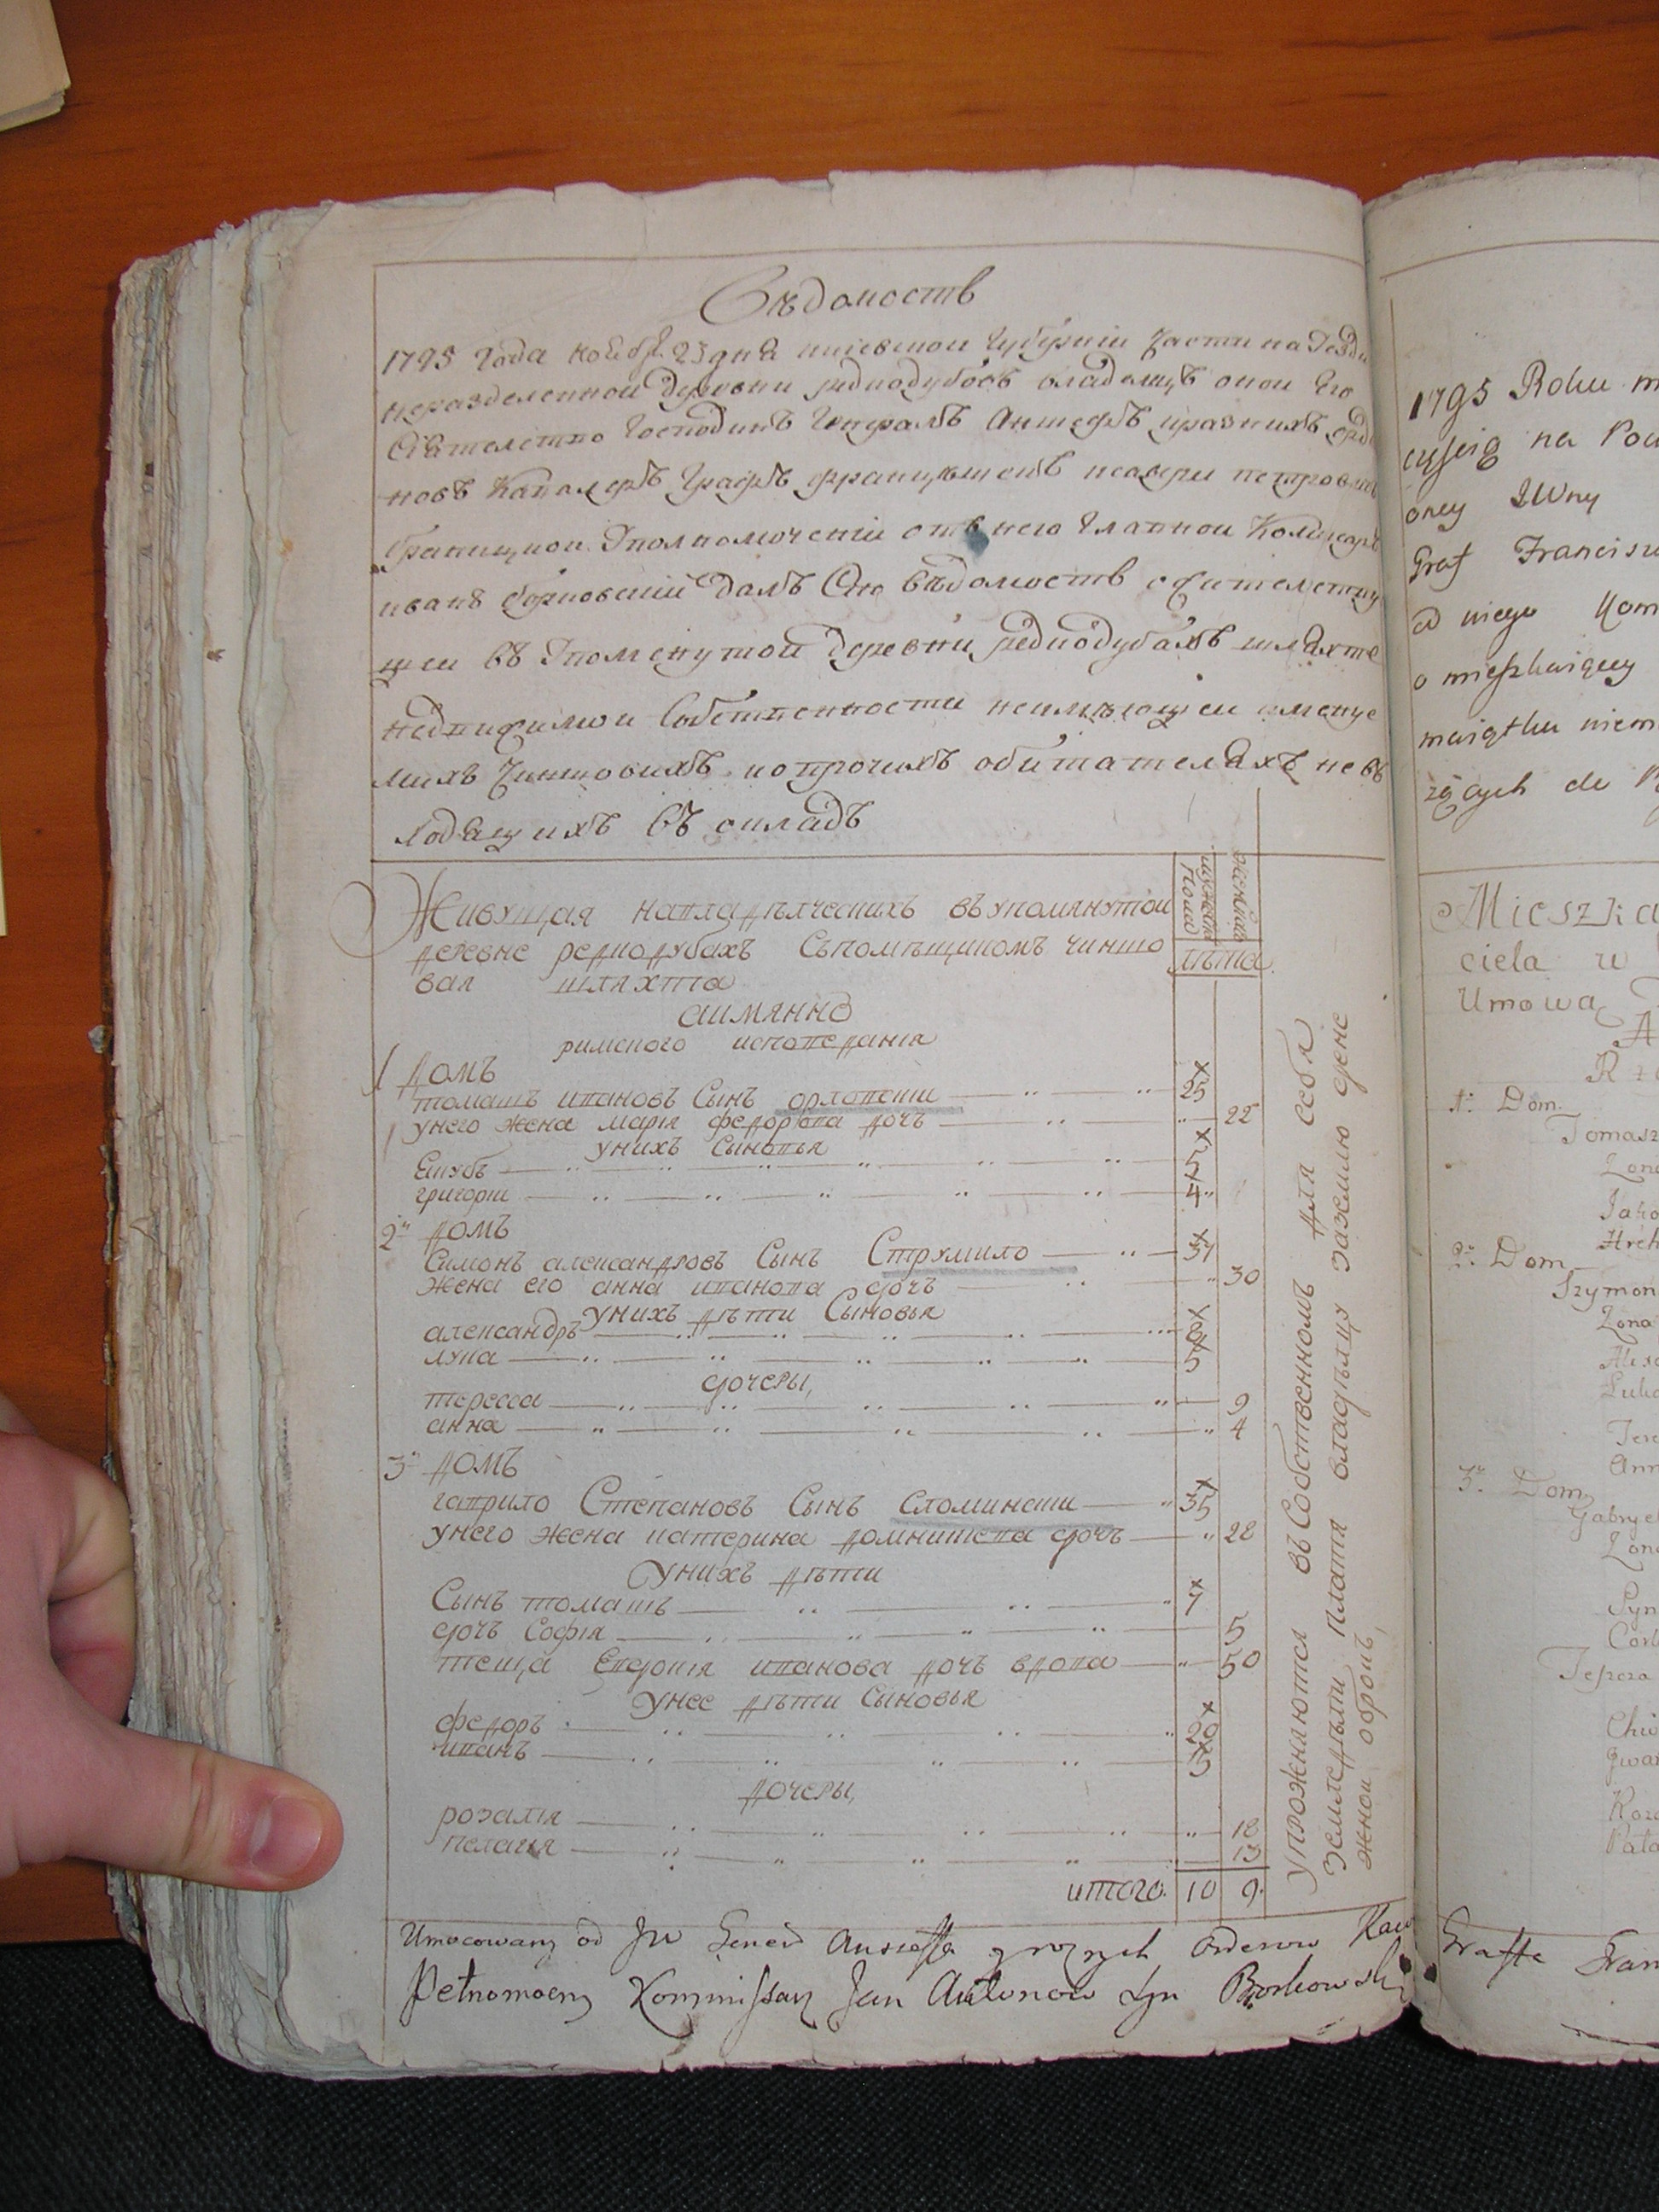 Вѣдомость
1795 года ноября 23 дня киевской губерніи части на
неразделенной деревни редкодубовъ владелецъ оной Его
Сіятелство Господинъ Генералъ Аншефъ и разнихъ орде
новъ Кавалеръ Графъ францышекъ ксавери петровичь
браницкой уполномочений отъ него Главной Комисаръ
иванъ борковскій далъ Сію Вѣдомость о жителству
щей въ упомянутой деревни редкодубахъ шляхте
недвижимой собственности неимѣющей именуе
михъ чиншовихъ и опрочихъ обитателяхъ не въ
ходящихъ въ окладъ
Живущая навладѣлческихъ въ упомянутой
деревне редкодубахъ Съпомѣщикомъ чиншо
вая шляхта
аимянно
римского исповеданія
мужеска полу
женска
лѣта
1 домъ
томашъ ивановъ Сынъ орловскии 25
унего жена марія федорова дочь 22
унихъ Сыновья
Якубъ 5
григорий 4
2й домъ
Симонъ александровъ Сынъ Струмило 37
жена его анна иванова дочь 30
унихъ дѣти Сыновья
александръ 8
лука 5
дочеры,
тересса 9
анна 4
3й домъ
гаврило Степановъ Сынъ Сломински 35
унего жена катерина домникова дочь 28
Унихъ дѣти
Сынъ томашъ 7
дочь Софія 5
теща Евдокія иванова дочь вдова 50
Унее дѣти Сыновья
федоръ 20
иванъ 5
дочеры,
розалія 18
пелагія 13
итого. 10 9.
Упрожняются въ Собственномъ для себя
земледѣли плата владѣлцу заземлю дене
жной оброкъ,
Umocowany od JW Generał Ansieffa y roznych Orderow Kaw
Pełnomocny Kommissarz Jan Antonow Syn Borkowski
1795 Roku m
częścią na Pow
oney JWny
Graf Francisz
od niego Kom
o mieszkaiącey
maiątku niem
zących do
Mieszka
ciela w
Umowa
A
1. Dom
Tomasz
Zona
Jako
Hreh
2. Dom
Szymon
Zona
Alex
Luka
Tere
Ann
3. Dom
Gabryel
Zona
Syn
Cork
Tescza
Iwan
Roza
Pela
Graffa Fran